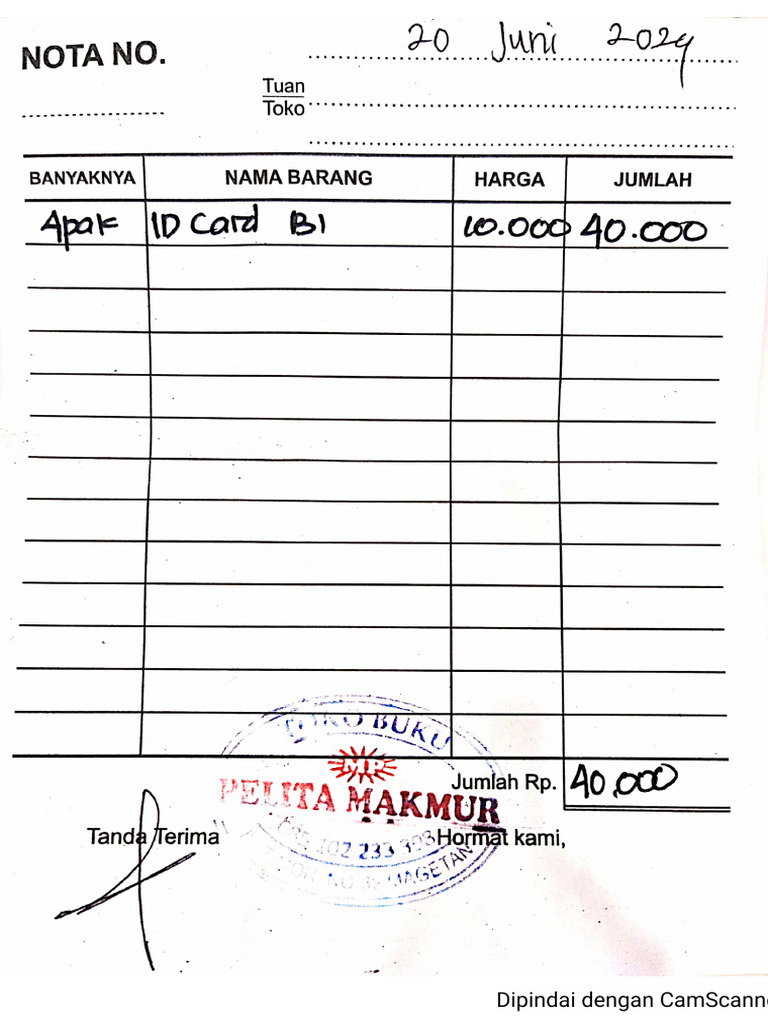 20 Juni 2024
NOTA NO.
Tuan
Toko
BANYAKNYA NAMA BARANG HARGA JUMLAH
4pak ID Card B1 10.000 40.000
TOKO BUKU
PELITA MAKMUR
Jumlah Rp. 40.000
102 233 398
NO 35 MAGETAN
Tanda Terima Hormat kami,
Dipindai dengan CamScanne